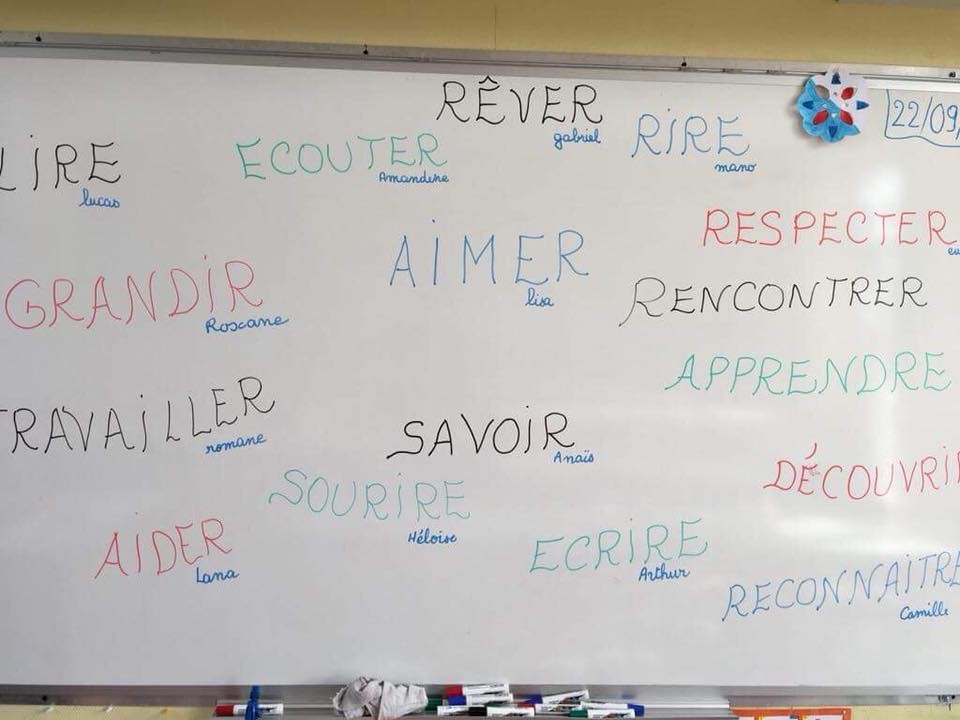 RÊVER
gabriel
RIRE
mano
22/09
LIRE
lucas
ECOUTER
Amandine
RESPECTER
AIMER
lisa
GRANDIR
Roxane
RENCONTRER
APPRENDRE
TRAVAILLER
romane
SAVOIR
Anaïs
DÉCOUVRIR
SOURIRE
Héloïse
AIDER
Lana
ECRIRE
Arthur
RECONNAITRE
Camille